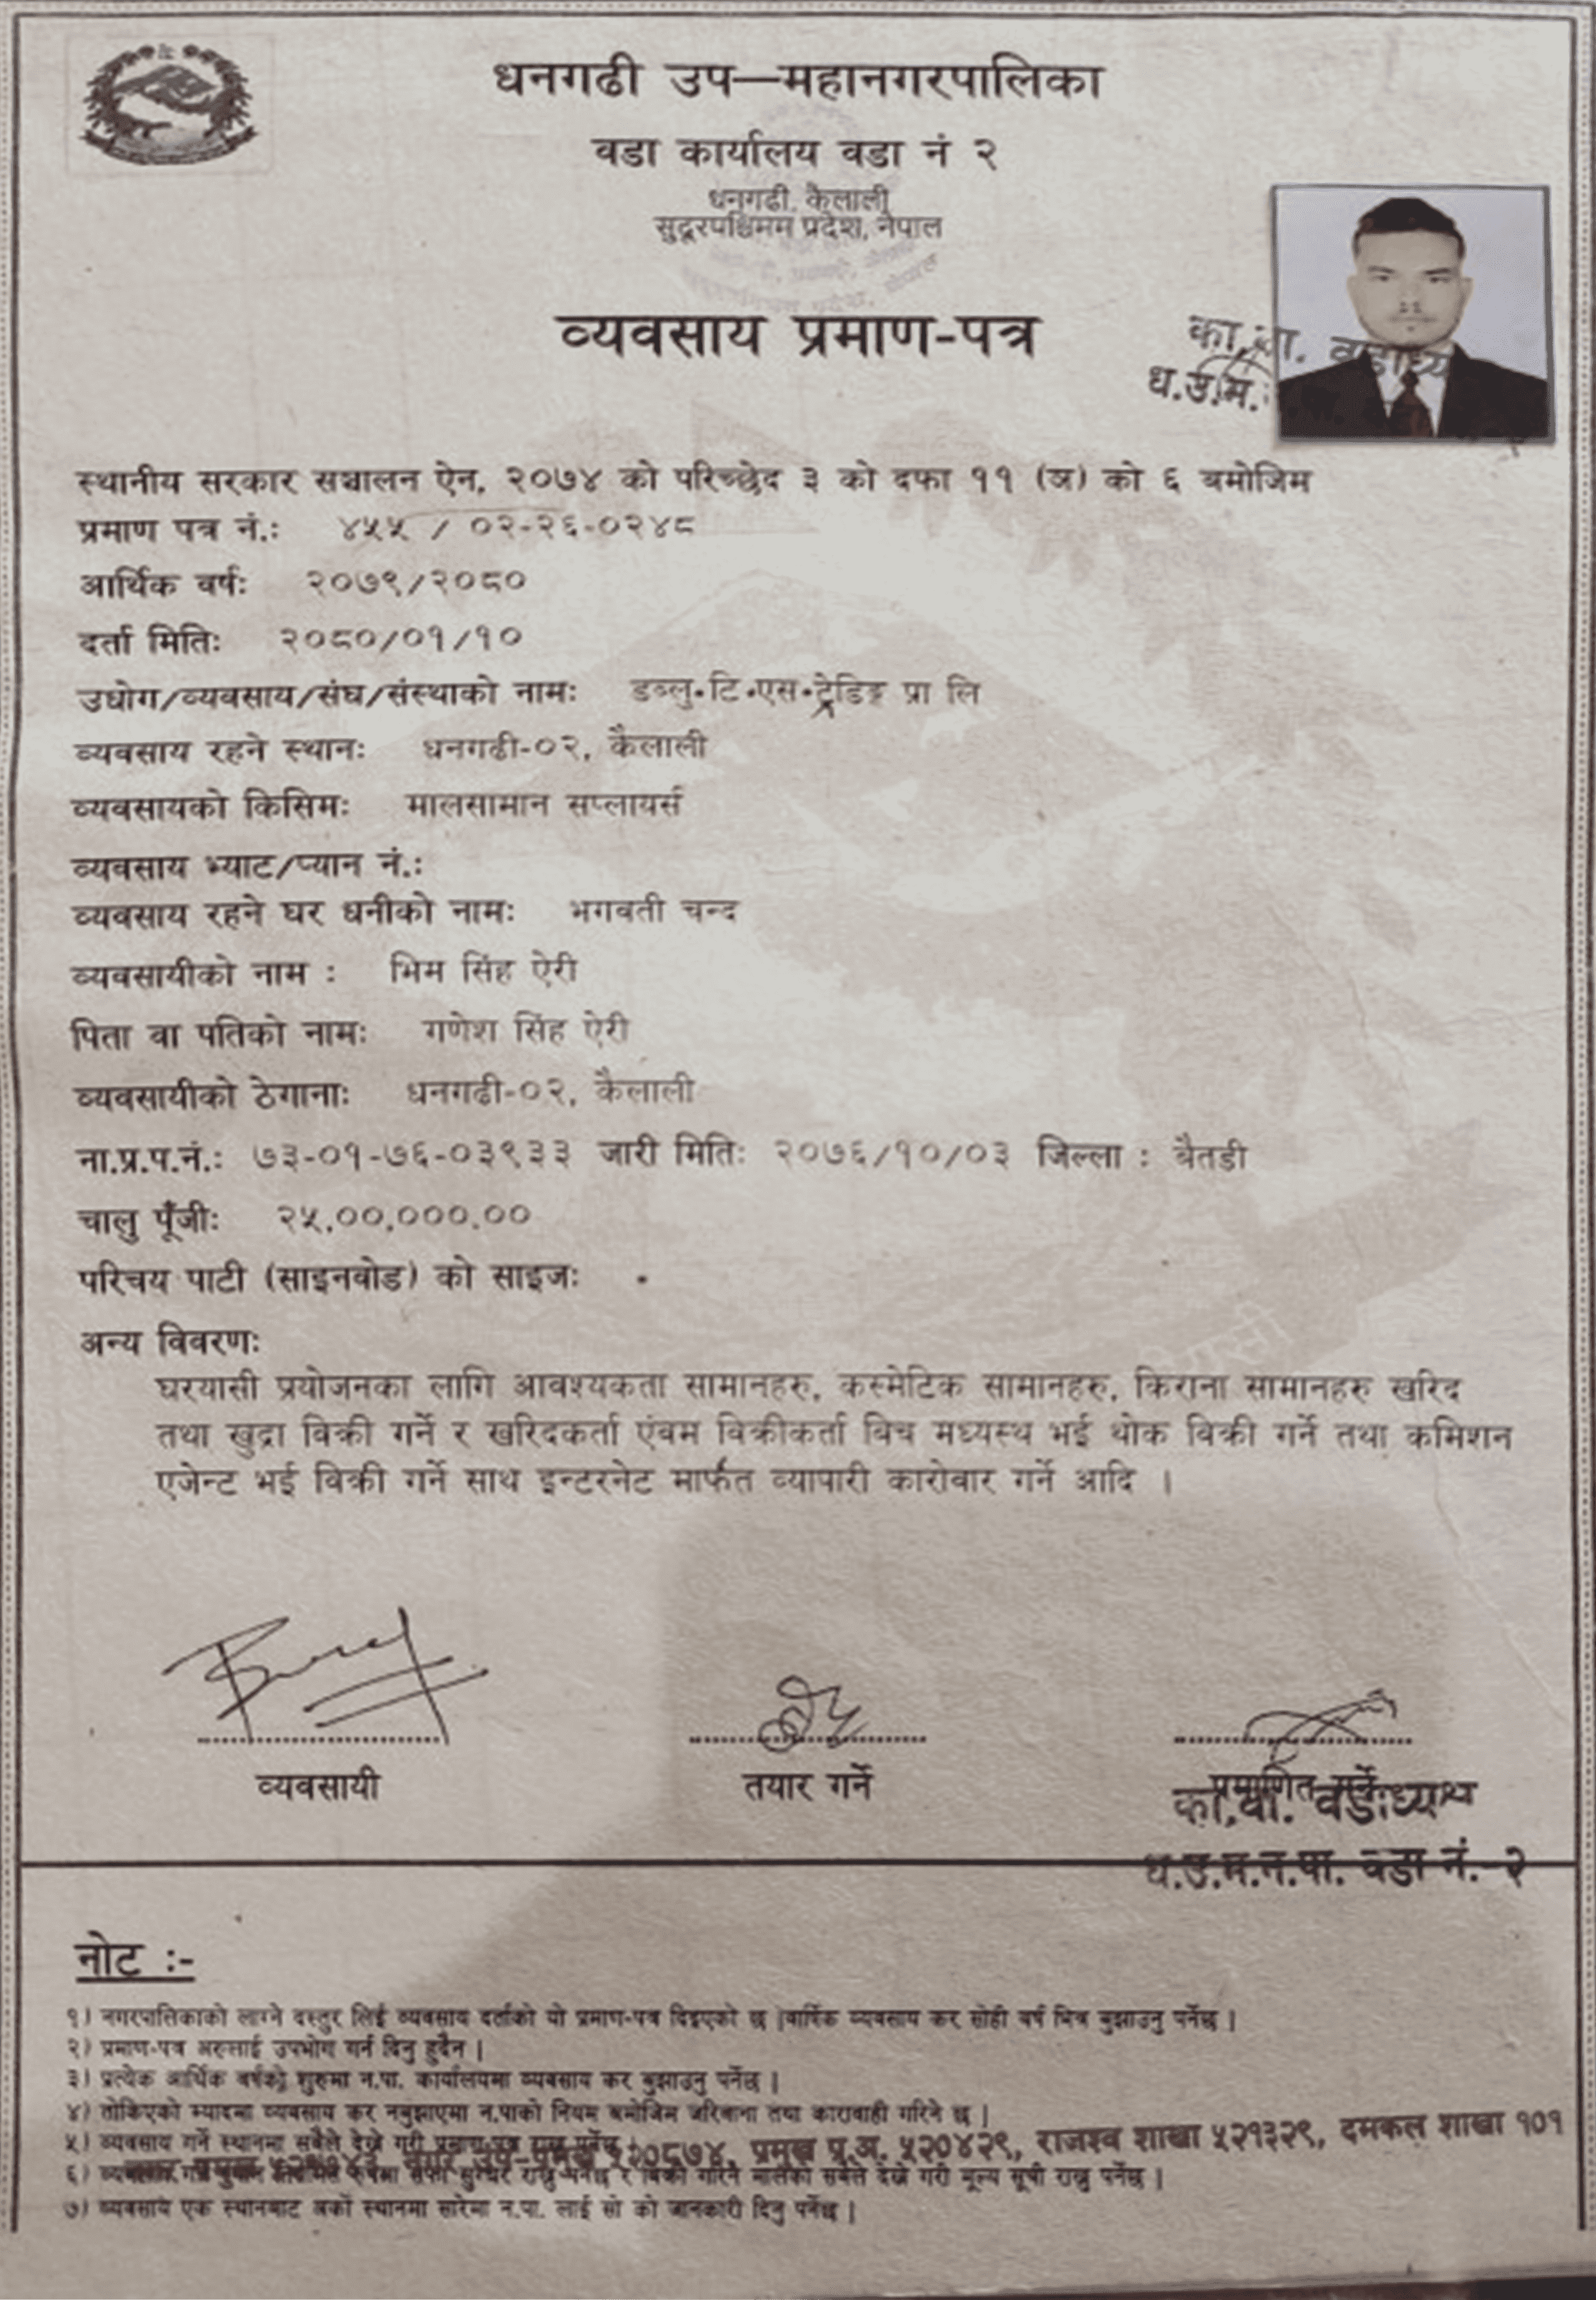 धनगढी उप—महानगरपालिका
वडा कार्यालय वडा नं २
धनगढी, कैलाली
सुदूरपश्चिमम प्रदेश, नेपाल
व्यवसाय प्रमाण-पत्र
का.वा. वडाध्य
ध.उ.म.
स्थानीय सरकार सञ्चालन ऐन, २०७४ को परिच्छेद ३ को दफा ११ (ञ) को ६ बमोजिम
प्रमाण पत्र नं.: ४५५ / ०२-२६-०२४८
आर्थिक वर्ष: २०७९/२०८०
दर्ता मिति: २०८०/०१/१०
उधोग/व्यवसाय/संघ/संस्थाको नाम: डब्लु.टि.एस.ट्रेडिङ्ग प्रा लि
व्यवसाय रहने स्थान: धनगढी-०२, कैलाली
व्यवसायको किसिम: मालसामान सप्लायर्स
व्यवसाय भ्याट/प्यान नं.:
व्यवसाय रहने घर धनीको नाम: भगवती चन्द
व्यवसायीको नाम : भिम सिंह ऐरी
पिता वा पतिको नाम: गणेश सिंह ऐरी
व्यवसायीको ठेगाना: धनगढी-०२, कैलाली
ना.प्र.प.नं.: ७३-०१-७६-०३९३३ जारी मिति: २०७६/१०/०३ जिल्ला : बैतडी
चालु पूँजी: २५,००,०००.००
परिचय पाटी (साइनवोड) को साइज:
अन्य विवरण:
घरयासी प्रयोजनका लागि आवश्यकता सामानहरु, कस्मेटिक सामानहरु, किराना सामानहरु खरिद
तथा खुद्रा विक्री गर्ने र खरिदकर्ता एंवम विक्रीकर्ता विच मध्यस्थ भई थोक विक्री गर्ने तथा कमिशन
एजेन्ट भई विक्री गर्ने साथ इन्टरनेट मार्फत व्यापारी कारोवार गर्ने आदि ।
व्यवसायी
तयार गर्ने
प्रमाणित गर्ने
का.वा. वडाध्यक्ष
ध.उ.म.न.पा. वडा नं. २
नोट :-
१) नगरपालिकाको लाग्ने दस्तुर लिई व्यवसाय दर्ताको यो प्रमाण-पत्र दिइएको छ |वार्षिक व्यवसाय कर सोही वर्ष भित्र बुझाउनु पर्नेछ |
२) प्रमाण-पत्र अरुलाई उपभोग गर्न दिनु हुदैन |
३) प्रत्येक आर्थिक वर्षको शुरुमा न.पा. कार्यालयमा व्यवसाय कर बुझाउनु पर्नेछ |
४) तोकिएको म्यादमा व्यवसाय कर नबुझाएमा न.पाको नियम बमोजिम जरिवाना तथा कारावाही गरिने छ |
५) व्यवसाय गर्ने स्थानमा सबैले देख्ने गरी प्रमाण पत्र राख्नु पर्नेछ |
नगर उप-प्रमुख ५२०८७४, प्रमुख प्र.अ. ५२०४२९, राजश्व शाखा ५२१३२९, दमकल शाखा १०१
६) सफा सुग्घर राख्नु पर्नेछ र बिक्री गरिने मालको सबैले देख्ने गरी मूल्य सूची राख्नु पर्नेछ |
७) व्यवसाय एक स्थानबाट अर्को स्थानमा सारेमा न.पा. लाई सो को जानकारी दिनु पर्नेछ |